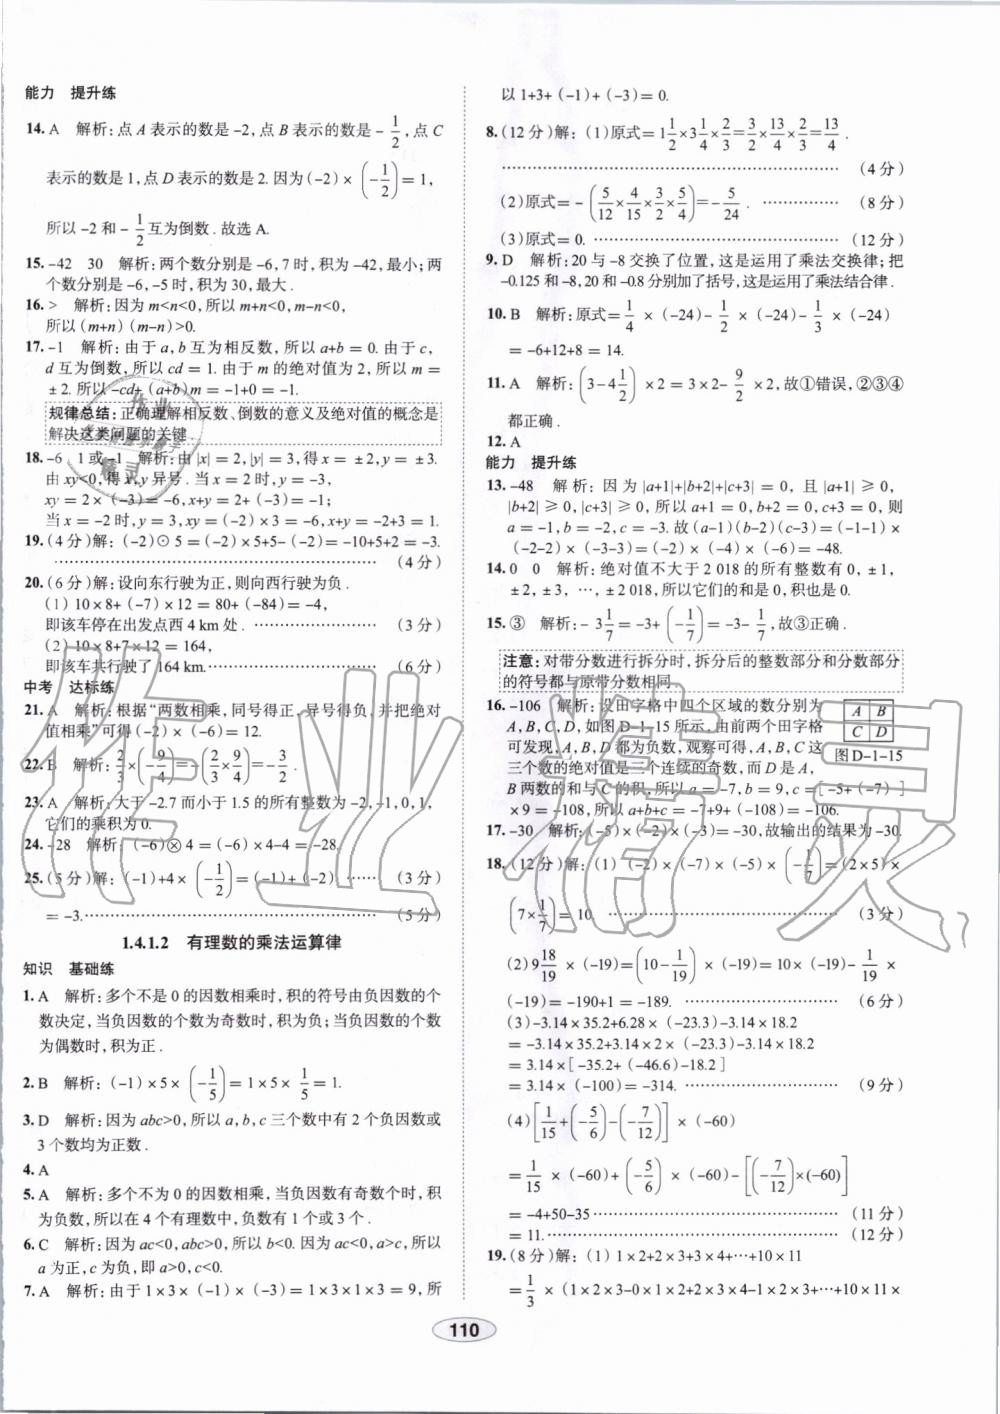 能力 提升练
14. A 解析:点 A 表示的数是 -2,点 B 表示的数是 -1/2,点 C
表示的数是 1,点 D 表示的数是 2. 因为(-2)×(-1/2)=1,
所以 -2 和 -1/2 互为倒数.故选 A.
15. -42 30 解析:两个数分别是 -6,7 时,积为 -42,最小;两
个数分别是 -6,-5 时,积为 30,最大.
16. > 解析:因为 m<n<0,所以 m+n<0,m-n<0,
所以(m+n)(m-n)>0.
17. -1 解析:由于 a,b 互为相反数,所以 a+b=0. 由于 c,
d 互为倒数,所以 cd=1. 由于 m 的绝对值为 2,所以 m=
±2. 所以 -cd+(a+b)m=-1+0=-1.
规律总结:正确理解相反数、倒数的意义及绝对值的概念是
解决这类问题的关键.
18. -6 1 或 -1 解析:由|x|=2,|y|=3,得 x=±2,y=±3.
由 xy<0,得 x,y 异号.当 x=2 时,y=-3,
xy=2×(-3)=-6,x+y=2+(-3)=-1;
当 x=-2 时,y=3,xy=(-2)×3=-6,x+y=-2+3=1.
19. (4 分)解:(-2)⊙5=(-2)×5+5-(-2)=-10+5+2=-3.
…(4 分)
20. (6 分)解:设向东行驶为正,则向西行驶为负.
(1)10×8+(-7)×12=80+(-84)=-4,
即该车停在出发点西 4 km 处.…(3 分)
(2)10×8+7×12=164,
即该车共行驶了 164 km.…(6 分)
中考 达标练
21. A 解析:根据“两数相乘,同号得正,异号得负,并把绝对
值相乘”可得(-2)×(-6)=12.
22. B 解析:2/3×(-9/4)=-(2/3×9/4)=-3/2
23. A 解析:大于 -2.7 而小于 1.5 的所有整数为 -2,-1,0,1,
它们的乘积为 0.
24. -28 解析:(-6)⊗4=(-6)×4-4=-28.
25. (5 分)解:(-1)+4×(-1/2)=(-1)+(-2)…(3 分)
=-3.…(5 分)
1.4.1.2 有理数的乘法运算律
知识 基础练
1. A 解析:多个不是 0 的因数相乘时,积的符号由负因数的个
数决定,当负因数的个数为奇数时,积为负;当负因数的个数
为偶数时,积为正.
2. B 解析:(-1)×5×(-1/5)=1×5×1/5=1.
3. D 解析:因为 abc>0,所以 a,b,c 三个数中有 2 个负因数或
3 个数均为正数.
4. A
5. A 解析:多个不为 0 的因数相乘,当负因数有奇数个时,积
为负数,所以在 4 个有理数中,负数有 1 个或 3 个.
6. C 解析:因为 ac<0,abc>0,所以 b<0. 因为 ac<0,a>c,所以
a 为正,c 为负,即 a>0,c<0.
7. A 解析:由于 1×3×(-1)×(-3)=1×3×1×3=9,所
以 1+3+(-1)+(-3)=0.
8. (12 分)解:(1)原式=1 1/2×3 1/4×2/3=3/2×13/4×2/3=13/4.
…(4 分)
(2)原式=-(5/12×4/15×3/2×5/4)=-5/24.…(8 分)
(3)原式=0.…(12 分)
9. D 解析:20 与 -8 交换了位置,这是运用了乘法交换律;把
-0.125 和 -8,20 和 -0.8 分别加了括号,这是运用了乘法结合律.
10. B 解析:原式=1/4×(-24)-1/2×(-24)-1/3×(-24)
=-6+12+8=14.
11. A 解析:(3-4 1/2)×2=3×2-9/2×2,故①错误,②③④
都正确.
12. A
能力 提升练
13. -48 解析:因为|a+1|+|b+2|+|c+3|=0,且|a+1|≥0,
|b+2|≥0,|c+3|≥0,所以 a+1=0,b+2=0,c+3=0,则
a=-1,b=-2,c=-3. 故(a-1)(b-2)(c-3)=(-1-1)×
(-2-2)×(-3-3)=(-2)×(-4)×(-6)=-48.
14. 0 0 解析:绝对值不大于 2 018 的所有整数有 0,±1,
±2,±3,…,±2 018,所以它们的和是 0,积也是 0.
15. ③ 解析:-3 1/7=-3+(-1/7)=-3-1/7,故③正确.
注意:对带分数进行拆分时,拆分后的整数部分和分数部分
的符号都与原带分数相同.
16. -106 解析:设田字格中四个区域的数分别为
A,B,C,D,如图 D-1-15 所示,由前两个田字格
可发现,A,B,D 都为负数,观察可得,A,B,C 这
三个数的绝对值是三个连续的奇数,而 D 是 A,
B 两数的和与 C 的积,所以 a=-7,b=9,c=[-5+(-7)]
×9=-108,所以 a+b+c=-7+9+(-108)=-106.
A B
C D
图 D-1-15
17. -30 解析:(-5)×(-2)×(-3)=-30,故输出的结果为 -30.
18. (12 分)解:(1)(-2)×(-7)×(-5)×(-1/7)=(2×5)×
(7×1/7)=10.…(3 分)
(2)9 18/19×(-19)=(10-1/19)×(-19)=10×(-19)-1/19×
(-19)=-190+1=-189.…(6 分)
(3)-3.14×35.2+6.28×(-23.3)-3.14×18.2
=-3.14×35.2+3.14×2×(-23.3)-3.14×18.2
=3.14×[-35.2+(-46.6)-18.2]
=3.14×(-100)=-314.…(9 分)
(4)[1/15+(-5/6)-(-7/12)]×(-60)
=1/15×(-60)+(-5/6)×(-60)-[(-7/12)×(-60)]
=-4+50-35…(11 分)
=11.…(12 分)
19. (8 分)解:(1)1×2+2×3+3×4+…+10×11
=1/3×(1×2×3-0×1×2+2×3×4-1×2×3+…+10×11×
110
作业精灵